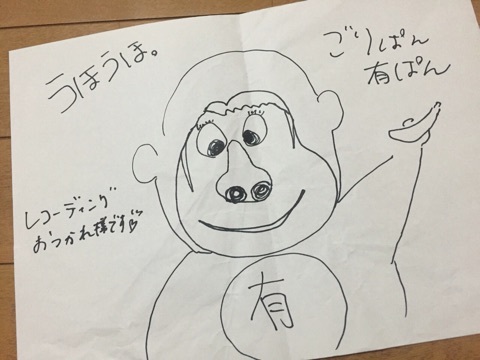 うほうほ。
ごりぱん
有ぱん
レコーディング
おつかれ様です
有